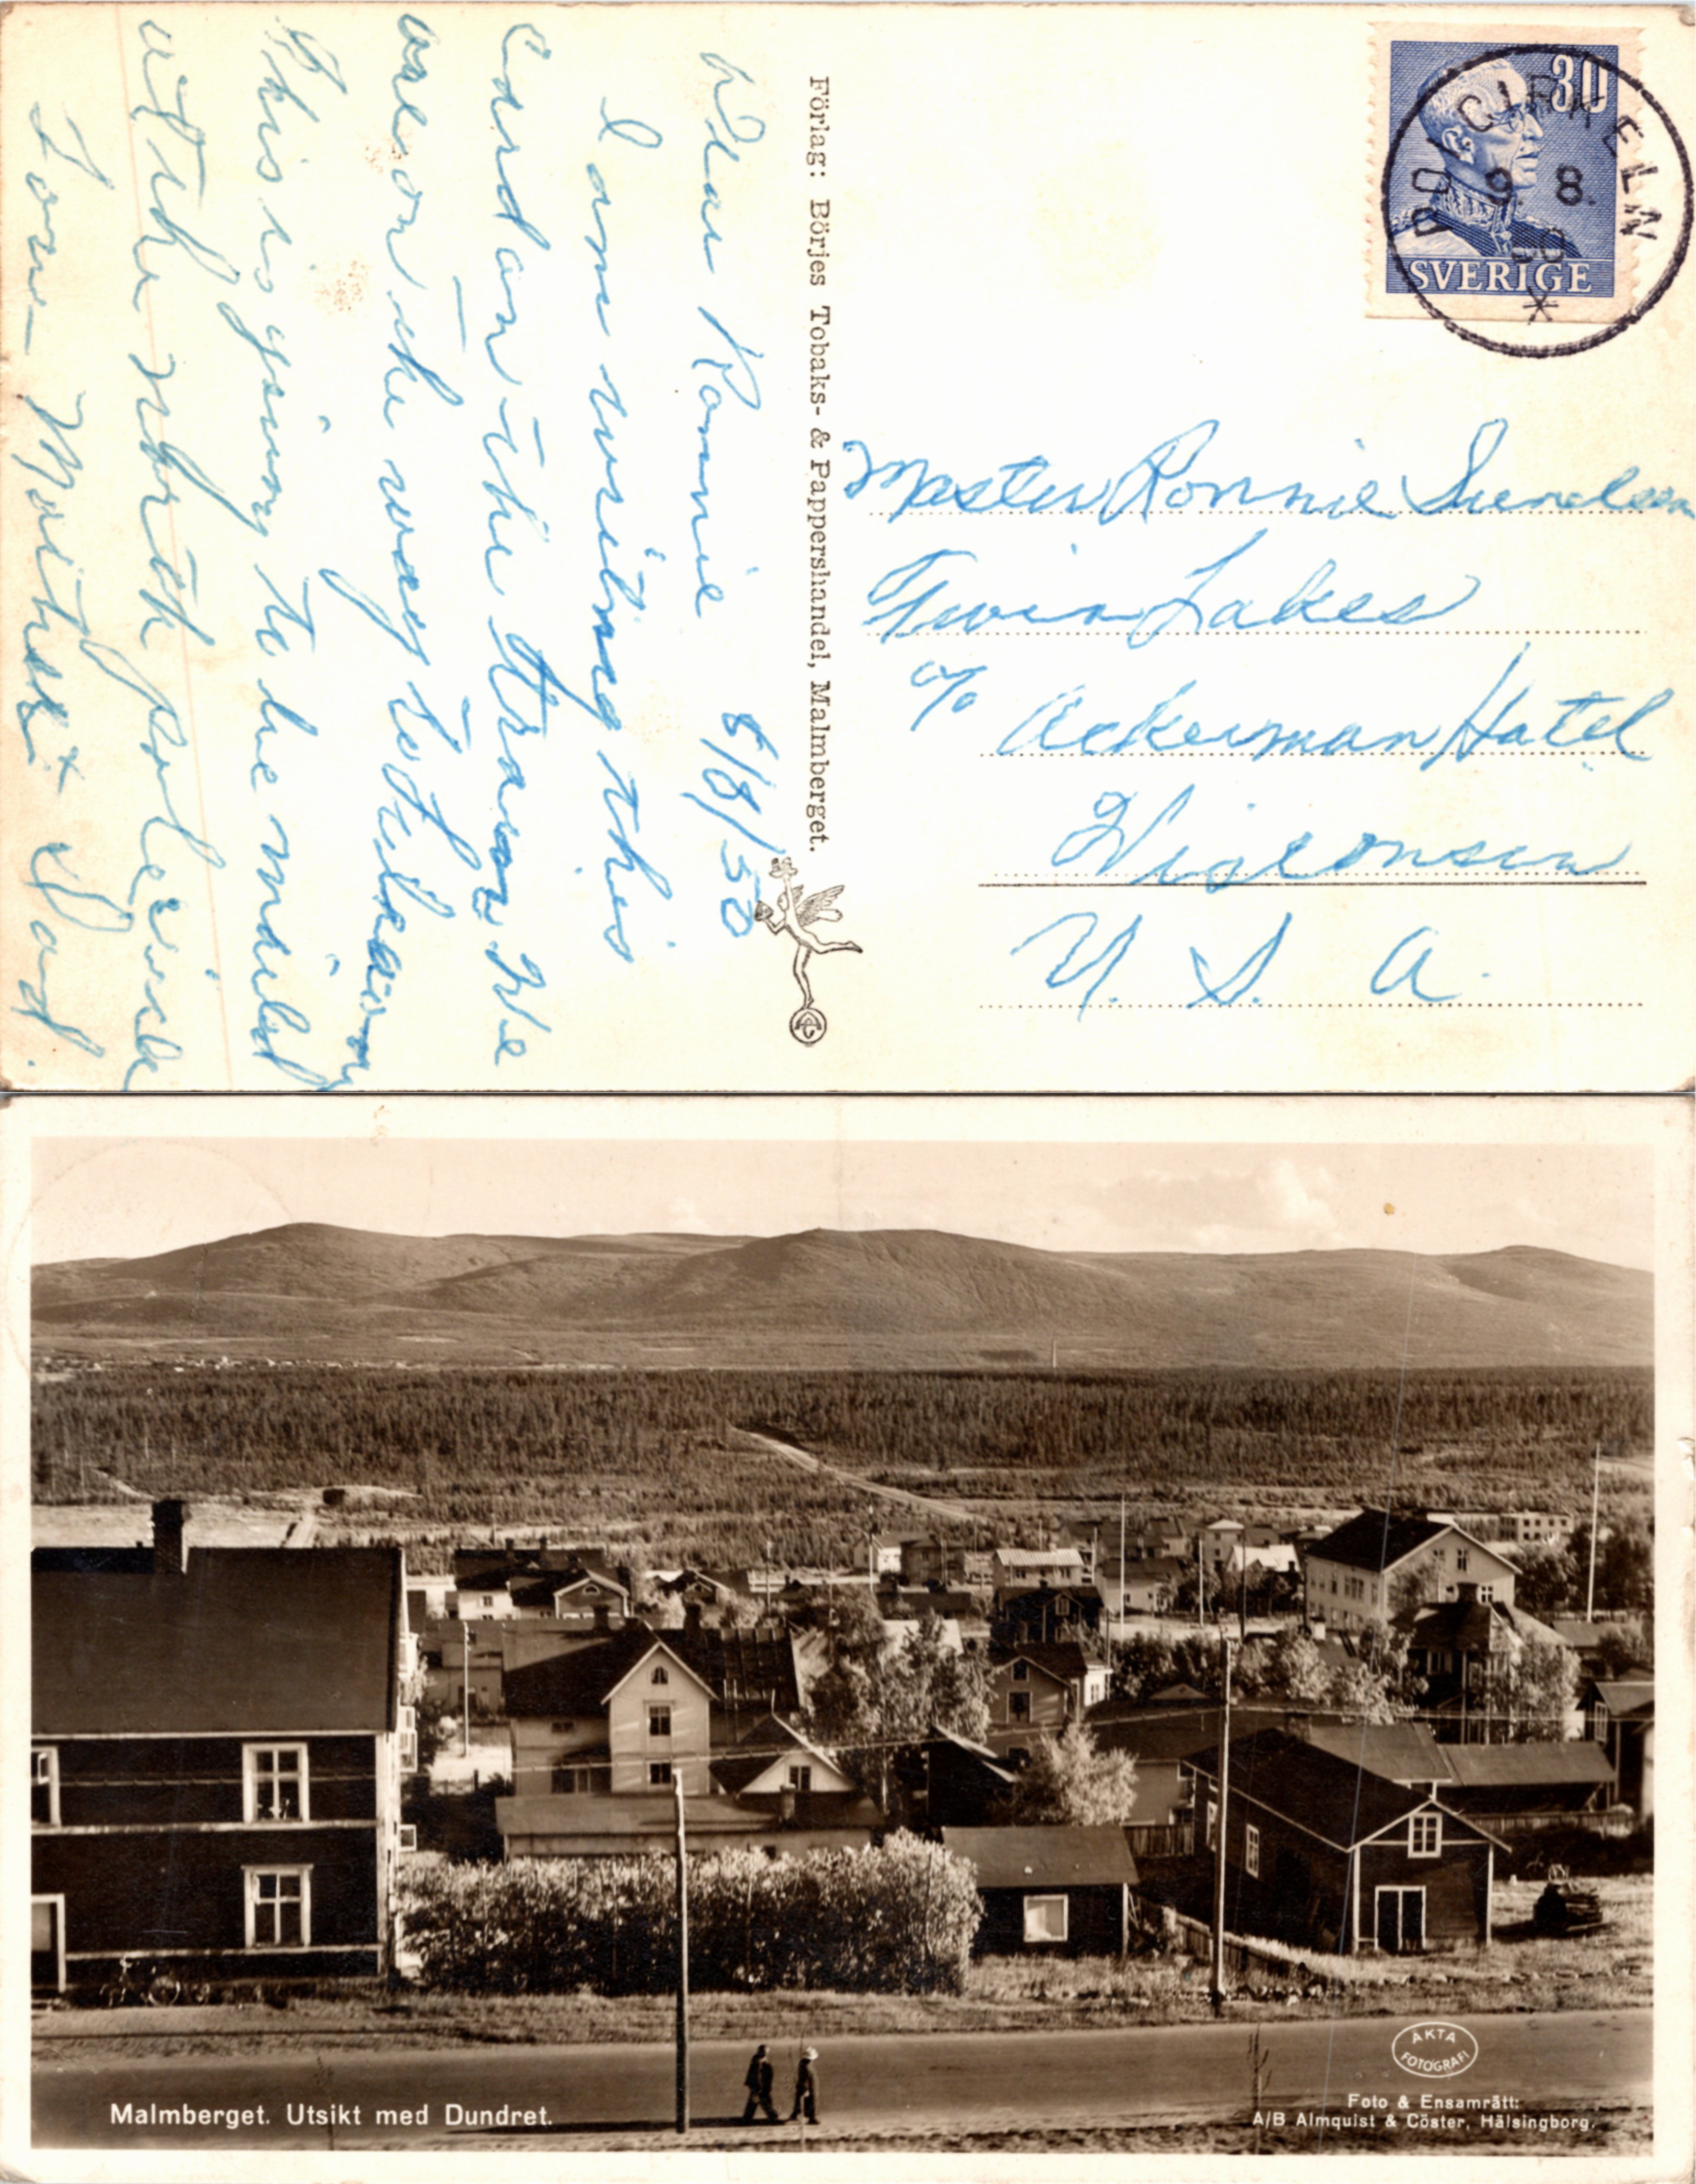 Dear Ronnie 8/8/50
I am writing this
card on the train We
are on the way to
This is going to be
at the north pole
Love - Mother + Dad.
Förlag: Börjes Tobaks- & Pappershandel, Malmberget.
30
SVERIGE
POLCIRKELN
9. 8.
50
Master Ronnie
Twin Lakes
c/o
Ackerman Hotel
Wisconsin
U. S. A.
Malmberget. Utsikt med Dundret.
ÄKTA
FOTOGRAFI
Foto & Ensamrätt:
A/B Almquist & Cöster, Hälsingborg.